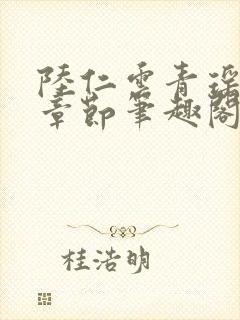 陸仁雲青瑶
章節筆趣閣
桂浩明